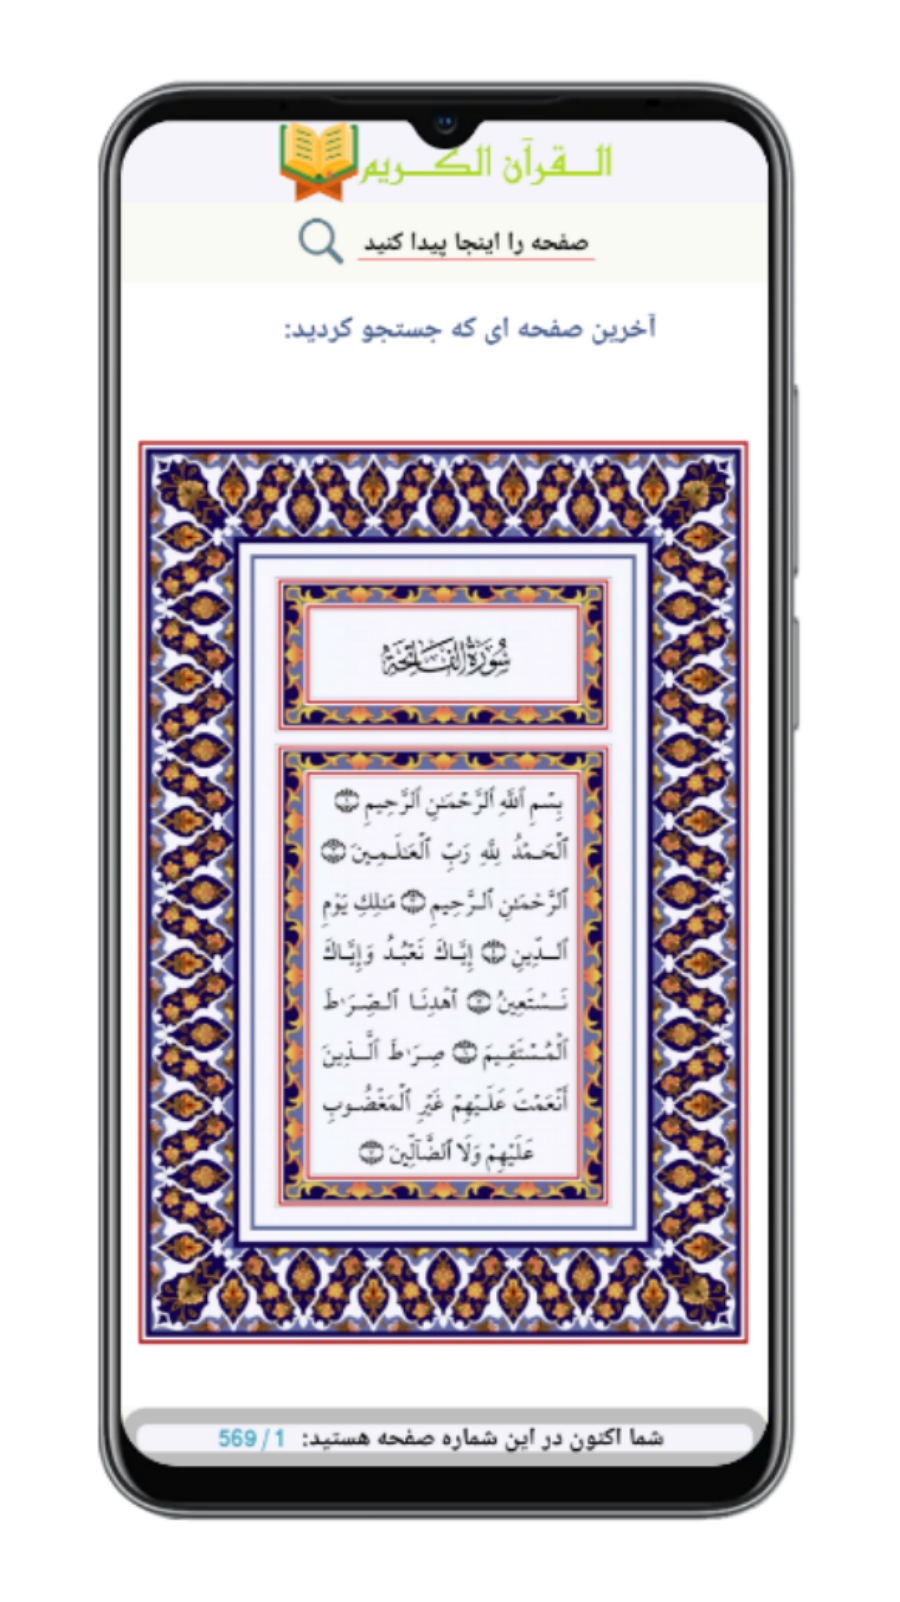 القرآن الكريم
صفحه را اینجا پیدا کنید
آخرین صفحه ای که جستجو کردید:
سُورَةُ الفَاتِحَةِ
بِسۡمِ ٱللَّهِ ٱلرَّحۡمَٰنِ ٱلرَّحِيمِ ١
ٱلۡحَمۡدُ لِلَّهِ رَبِّ ٱلۡعَٰلَمِينَ ٢
ٱلرَّحۡمَٰنِ ٱلرَّحِيمِ ٣ مَٰلِكِ يَوۡمِ
ٱلدِّينِ ٤ إِيَّاكَ نَعۡبُدُ وَإِيَّاكَ
نَسۡتَعِينُ ٥ ٱهۡدِنَا ٱلصِّرَٰطَ
ٱلۡمُسۡتَقِيمَ ٦ صِرَٰطَ ٱلَّذِينَ
أَنۡعَمۡتَ عَلَيۡهِمۡ غَيۡرِ ٱلۡمَغۡضُوبِ
عَلَيۡهِمۡ وَلَا ٱلضَّآلِّينَ ٧
شما اکنون در این شماره صفحه هستید: 569 / 1